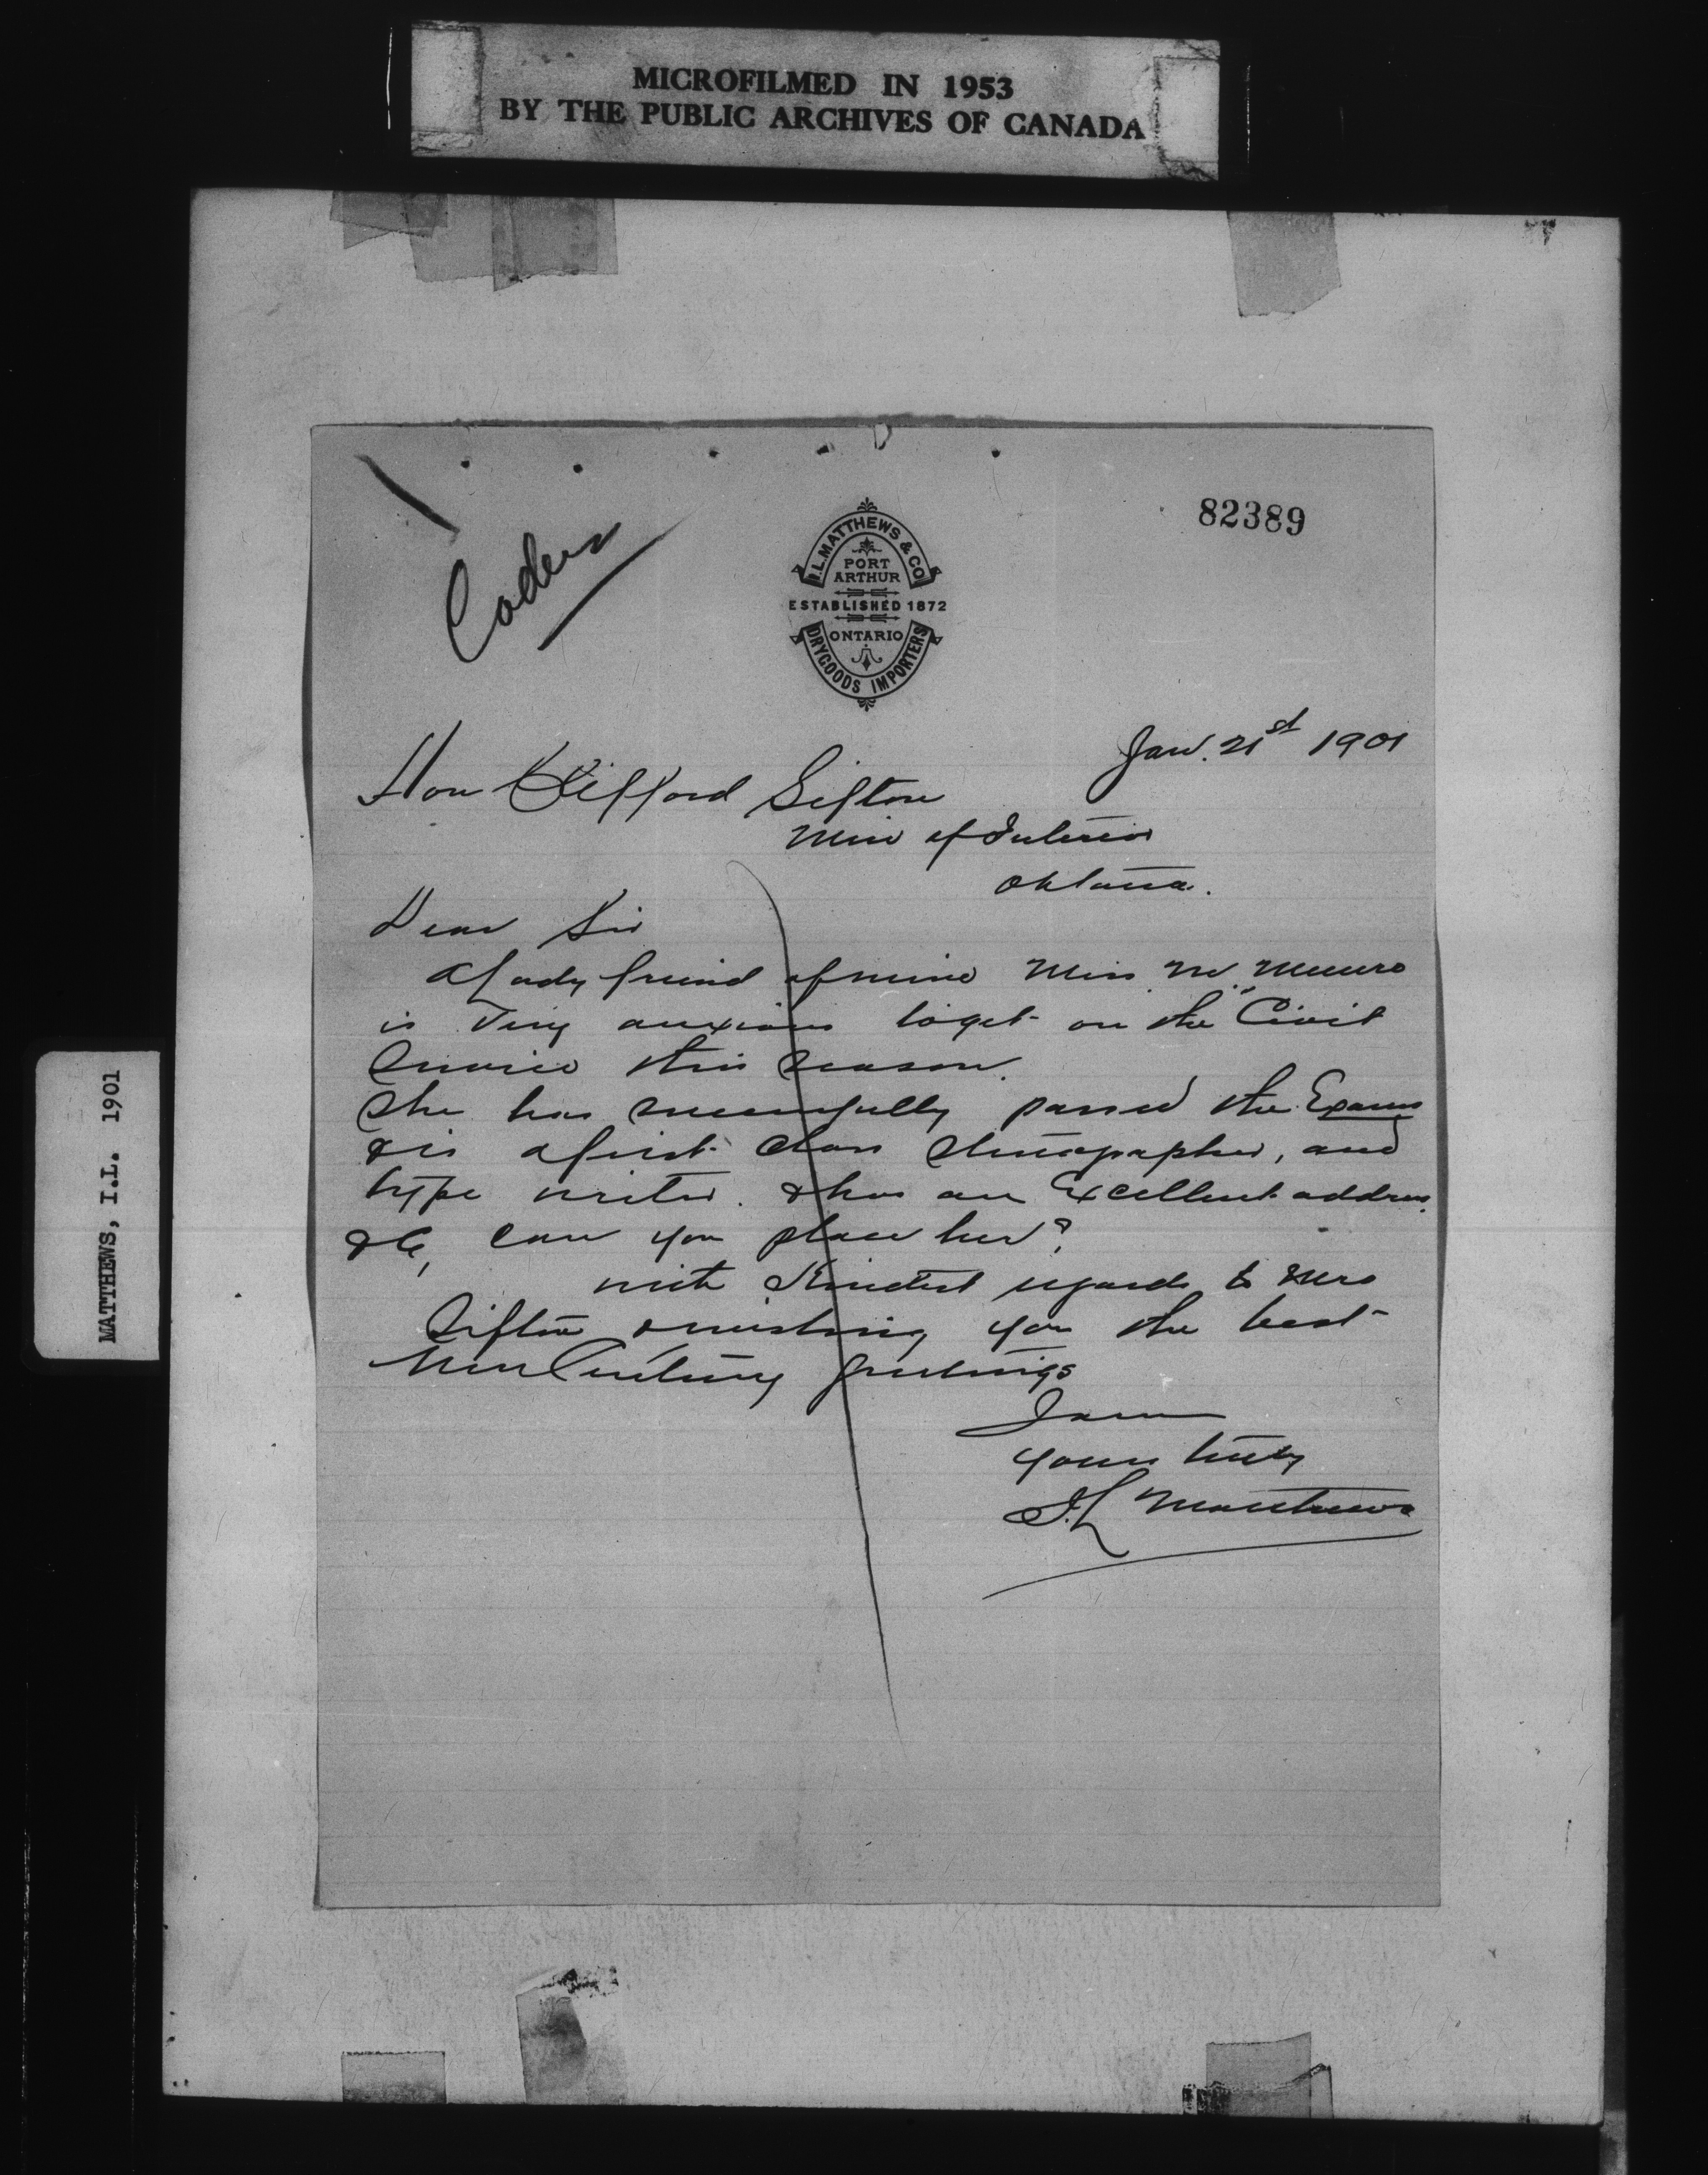 MICROFILMED IN 1953
BY THE PUBLIC ARCHIVES OF CANADA
MATTHEWS, I.L. 1901
82389
I.L. MATTHEWS & CO
PORT
ARTHUR
ESTABLISHED 1872
ONTARIO
DRYGOODS IMPORTERS
Jan. 21st 1901
Hon Clifford Sifton
Min of Interior
Ottawa.
Dear Sir
A Lady friend of mine Miss M. Munro
is Very anxious to get on the "Civil
Service this season.
She has successfully passed the Exams
& is a first class stenographer, and
type writer. & has an Excellent address.
&c, can you place her?
with Kindest regards to Mrs
Sifton & wishing you the best
New Century greetings
I am
yours truly
I.L Matthews